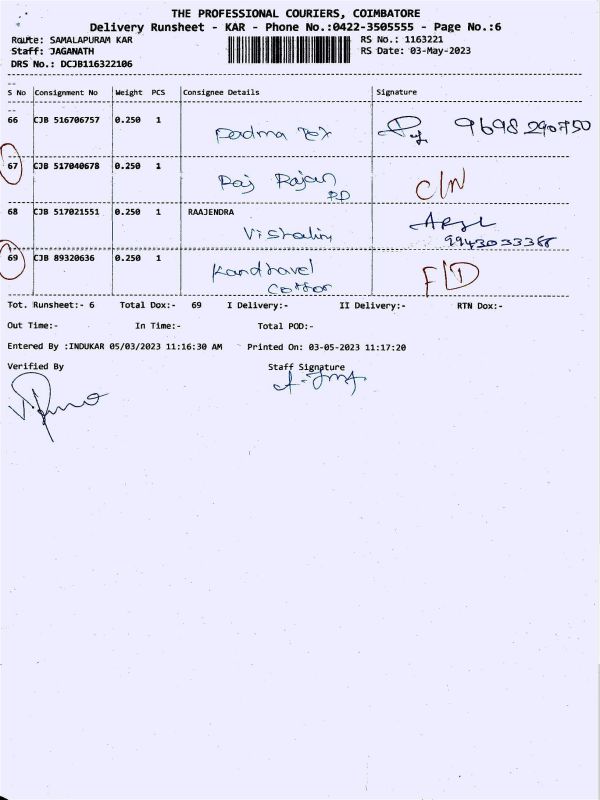 THE PROFESSIONAL COURIERS, COIMBATORE
Delivery Runsheet - KAR - Phone No.:0422-3505555 - Page No.:6
Route: SAMALAPURAM KAR RS No.: 1163221
Staff: JAGANATH RS Date: 03-May-2023
DRS No.: DCJB116322106
S No Consignment No Weight PCS Consignee Details Signature
66 CJB 516706757 0.250 1 Padma Tex 9698290750
67 CJB 517040678 0.250 1 Raj Rajan C/N
RD
68 CJB 517021551 0.250 1 RAAJENDRA
69 CJB 89320636 0.250 1 Kandhavel F/D
Cotton
Tot. Runsheet:- 6 Total Dox:- 69 I Delivery:- II Delivery:- RTN Dox:-
Out Time:- In Time:- Total POD:-
Entered By :INDUKAR 05/03/2023 11:16:30 AM Printed On: 03-05-2023 11:17:20
Verified By Staff Signature